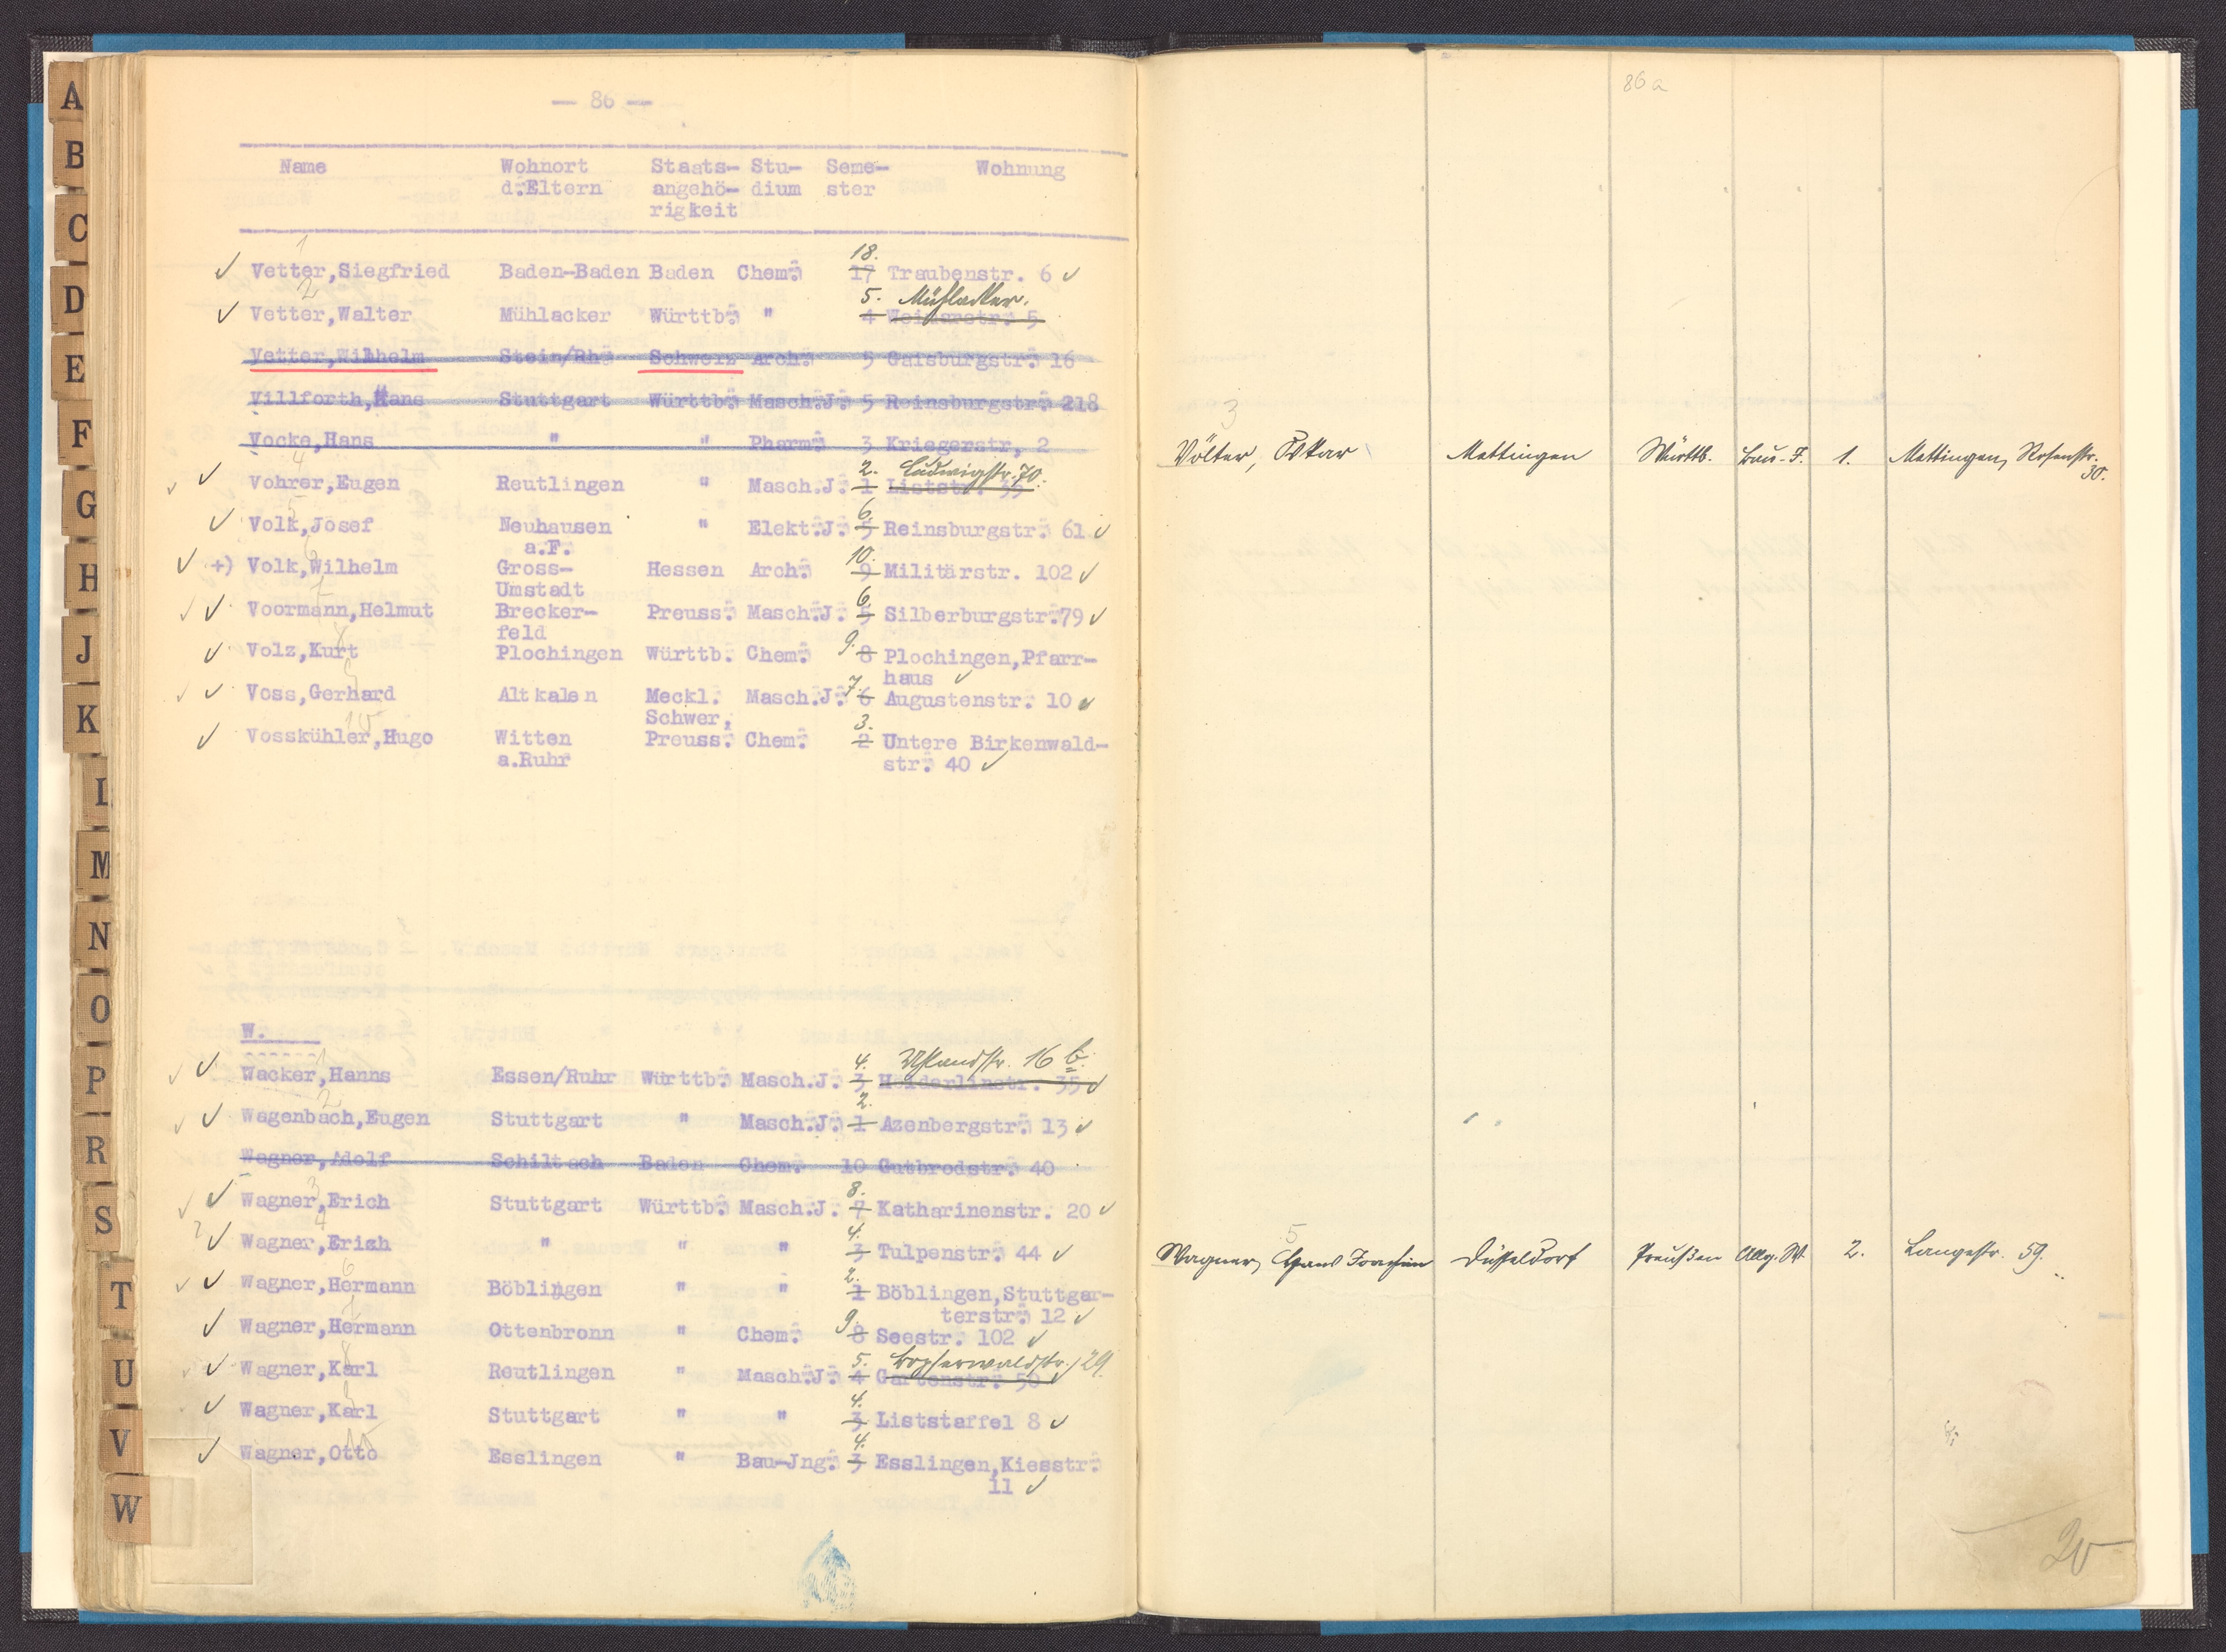 A
B
C
D
E
F
G
H
J
K
L
M
N
O
P
R
S
T
U
V
W
— 86 —
Name Wohnort Staats- Stu- Seme- Wohnung
d.Eltern angehö- dium ster
rigkeit
1
18.
Vetter,Siegfried Baden-Baden Baden Chem. 17 Traubenstr. 6
2 5. Mühlacker.
Vetter,Walter Mühlacker Württb. " 4 Weimarstr. 5
Vetter,Wilhelm Stein/Rh. Schweiz Arch. 5 Gaisburgstr. 16
Villforth,Hans Stuttgart Württb. Masch.J. 5 Reinsburgstr. 218
Vocke,Hans " " Pharm. 3 Kriegerstr. 2
4 2. Ludwigstr. 70.
Vohrer,Eugen Reutlingen " Masch.J. 1 Liststr. 39
5 6.
Volk,Josef Neuhausen " Elekt.J. 5 Reinsburgstr. 61
a.F.
6 10.
+) Volk,Wilhelm Gross- Hessen Arch. 9 Militärstr. 102
Umstadt
7 6.
Voormann,Helmut Brecker- Preuss. Masch.J. 5 Silberburgstr.79
feld
8 9.
Volz,Kurt Plochingen Württb. Chem. 8 Plochingen,Pfarr-
haus
9 7.
Voss,Gerhard Altkalen Meckl. Masch.J. 6 Augustenstr. 10
Schwer.
10 3.
Vosskühler,Hugo Witten Preuss. Chem. 2 Untere Birkenwald-
a.Ruhr str. 40
W.
1 4. Uhlandstr. 16 b.
Wacker,Hanns Essen/Ruhr Württb. Masch.J. 3 Hölderlinstr. 35
2 2.
Wagenbach,Eugen Stuttgart " Masch.J. 1 Azenbergstr. 13
Wagner,Adolf Schiltach Baden Chem. 10 Gutbrodstr. 40
3 8.
Wagner,Erich Stuttgart Württb. Masch.J. 7 Katharinenstr. 20
4 4.
Wagner,Erich " " " 3 Tulpenstr. 44
6 2.
Wagner,Hermann Böblingen " " 1 Böblingen,Stuttgar-
terstr. 12
7 9.
Wagner,Hermann Ottenbronn " Chem. 8 Seestr. 102
8 5. Bopserwaldstr. 29.
Wagner,Karl Reutlingen " Masch.J. 4 Gartenstr. 50
9 4.
Wagner,Karl Stuttgart " " 3 Liststaffel 8
10 4.
Wagner,Otto Esslingen " Bau-Jng. 3 Esslingen,Kiesstr.
11
86a
3
Völter, Oskar Mettingen Württb. Bau-J. 1. Mettingen, Rosenstr.
30.
5
Wagner, Hans Joachim Düsseldorf Preußen Allg. W. 2. Langestr. 59.
20